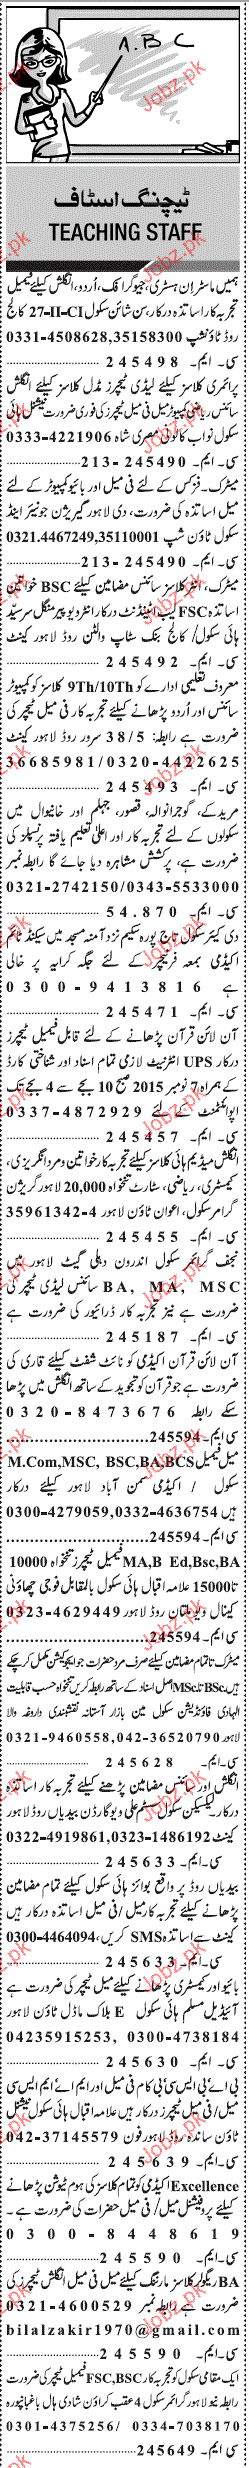 A.B C
ٹیچنگ اسٹاف
TEACHING STAFF
ہمیں ماسٹران ہسٹری، جیوگرافک، اُردو، انگلش کیلئے فیمیل
تجربہ کار اساتذہ درکار، سن شائن سکول 27-II-CI کالج
روڈ ٹاؤنشپ 0331-4508628,35158300
سی۔ایم۔ 245498
پرائمری کلاسز کیلئے لیڈی ٹیچرز مڈل کلاسز کیلئے انگلش
سائنس ریاضی کمپیوٹر میل فی میل ٹیچرز کی فوری ضرورت نیشنل ہائی
سکول نواب کالونی مصری شاہ 0333-4221906
سی۔ایم۔ 245490-213
میٹرک، فزکس کے لئے فی میل اور بائیو کمپیوٹر کے لئے
میل اساتذہ کی ضرورت، دی لاہور گیریژن جونیئر اینڈ
سکول ٹاؤن شپ 0321.4467249,35110001
سی۔ایم۔ 245490-213
میٹرک، انٹر کلاسز سائنس مضامین کیلئے BSC خواتین
اساتذہ FSC لیب اٹینڈنٹ درکار انٹرویو پیر منگل سرسید
ہائی سکول/ کالج بنک سٹاپ والٹن روڈ لاہور کینٹ
سی۔ایم۔ 245492
معروف تعلیمی ادارے کو 9Th/10Th کلاسز کو کمپیوٹر
سائنس اور اُردو پڑھانے کیلئے تجربہ کار فی میل ٹیچر کی
ضرورت ہے رابطہ: 38/5 سرور روڈ لاہور کینٹ
36685981/0320-4422625
سی۔ایم۔ 245493
مریدکے، گوجرانوالہ، قصور، جہلم اور خانیوال میں
سکولوں کے لئے تجربہ کار اور اعلیٰ تعلیم یافتہ پرنسپلز کی
ضرورت ہے، پرکشش مشاہرہ دیا جائے گا رابطہ نمبر
0321-2742150/0343-5533000
سی۔ایم۔ 54.870
دی کیئر سکول تاج پورہ سکیم نزد آمنہ مسجد میں سیکنڈ ٹائم
اکیڈمی بمعہ فرنیچر کے لئے جگہ کرایہ پر خالی
ہے 0300-9413816
سی۔ایم۔ 245471
آن لائن قرآن پڑھانے کے لئے قابل فیمیل ٹیچرز
درکار UPS انٹرنیٹ لازمی تمام اسناد اور شناختی کارڈ
کے ہمراہ 7 نومبر 2015 صبح 10 بجے سے 4 بجے تک
اپوائنٹمنٹ کے لئے 0337-4872929
سی۔ایم۔ 245457
انگلش میڈیم ہائی کلاسز کیلئے تجربہ کار خواتین و مرد انگریزی،
کیمسٹری، ریاضی، سٹارٹ تنخواہ 20,000 لاہور گریژن
گرامر سکول، اعوان ٹاؤن لاہور 4-35961342
سی۔ایم۔ 245455
نجف گرائمر سکول اندرون دہلی گیٹ لاہور میں
BA, MA, MSC سائنس لیڈی ٹیچر کی
ضرورت ہے نیز تجربہ کار ڈرائیور کی ضرورت ہے
سی۔ایم۔ 245187
آن لائن قرآن اکیڈمی کو نائٹ شفٹ کیلئے قاری کی
ضرورت ہے جو قرآن کو تجوید کے ساتھ انگلش میں پڑھا
سکے رابطہ 0320-8473676
سی ایم۔ 245594
میل فیمیل M.Com,MSC, BSC,BA,BCS
سکول / اکیڈمی سمن آباد لاہور کیلئے درکار
ہیں 0300-4279059,0332-4636754
سی ایم۔ 245594
MA,B Ed,Bsc,BA فیمیل ٹیچرز تنخواہ 10000
تا 15000 علامہ اقبال ہائی سکول بالمقابل فوجی چھاؤنی
کینال ویو ملتان روڈ لاہور 0323-4629449
سی ایم۔ 245594
میٹرک تا تمام مضامین کیلئے صرف مرد حضرات جو ایجوکیشن مکمل کر چکے
ہیں BSc تا MSc اصل اسناد کے ساتھ رابطہ کریں تنخواہ حسب قابلیت
الہادی فاؤنڈیشن سکول مین بازار آستانہ نقشبندی داروغہ والا
لاہور 042-36520790, 0321-9460558
سی۔ایم۔ 245628
انگلش اور سائنس مضامین پڑھنے کیلئے تجربہ کار اساتذہ
درکار سکول سسٹم علی ویو گارڈن بیدیاں روڈ لاہور
کینٹ 0322-4919861,0323-1486192
سی۔ایم۔ 245633
بیدیاں روڈ پر واقع بوائز ہائی سکول کیلئے تمام مضامین
پڑھانے کیلئے تجربہ کار میل / فی میل اساتذہ درکار ہیں
کینٹ سے اساتذہ SMS کریں، 0300-4464094
سی۔ایم۔ 245633
بائیو اور کیمسٹری پڑھانے کیلئے میل ٹیچر کی ضرورت ہے
آئیڈیل مسلم ہائی سکول E بلاک ماڈل ٹاؤن لاہور
04235915253, 0300-4738184
سی۔ایم۔ 245630
بی اے بی ایس سی بی کام فی میل اور ایم اے ایم ایس سی
میل / فی میل ٹیچرز درکار ہیں علامہ اقبال ہائی سکول نیشنل
ٹاؤن ساندہ روڈ لاہور فون 042-37145579
سی۔ایم۔ 245639
Excellence اکیڈمی کو تمام کلاسز کی ہوم ٹیوشن پڑھانے
کیلئے پروفیشنل میل / فی میل حضرات کی ضرورت ہے۔
0300-8448619
سی۔ایم۔ 245590
BA ریگولر کلاسز مارننگ کیلئے میل فی میل انگلش ٹیچرز کی
ضرورت ہے رابطہ نمبر 0321-4600529
bilalzakir1970@gmail.com
سی۔ایم۔ 245590
ایک مقامی سکول کو تجربہ کار FSC,BSC فیمیل ٹیچرز کی ضرورت
رابطہ نیو لاہور گرائمر سکول 4 عقب کراؤن شادی ہال باغبانپورہ
0301-4375256/ 0334-7038170
سی ایم۔ 245649